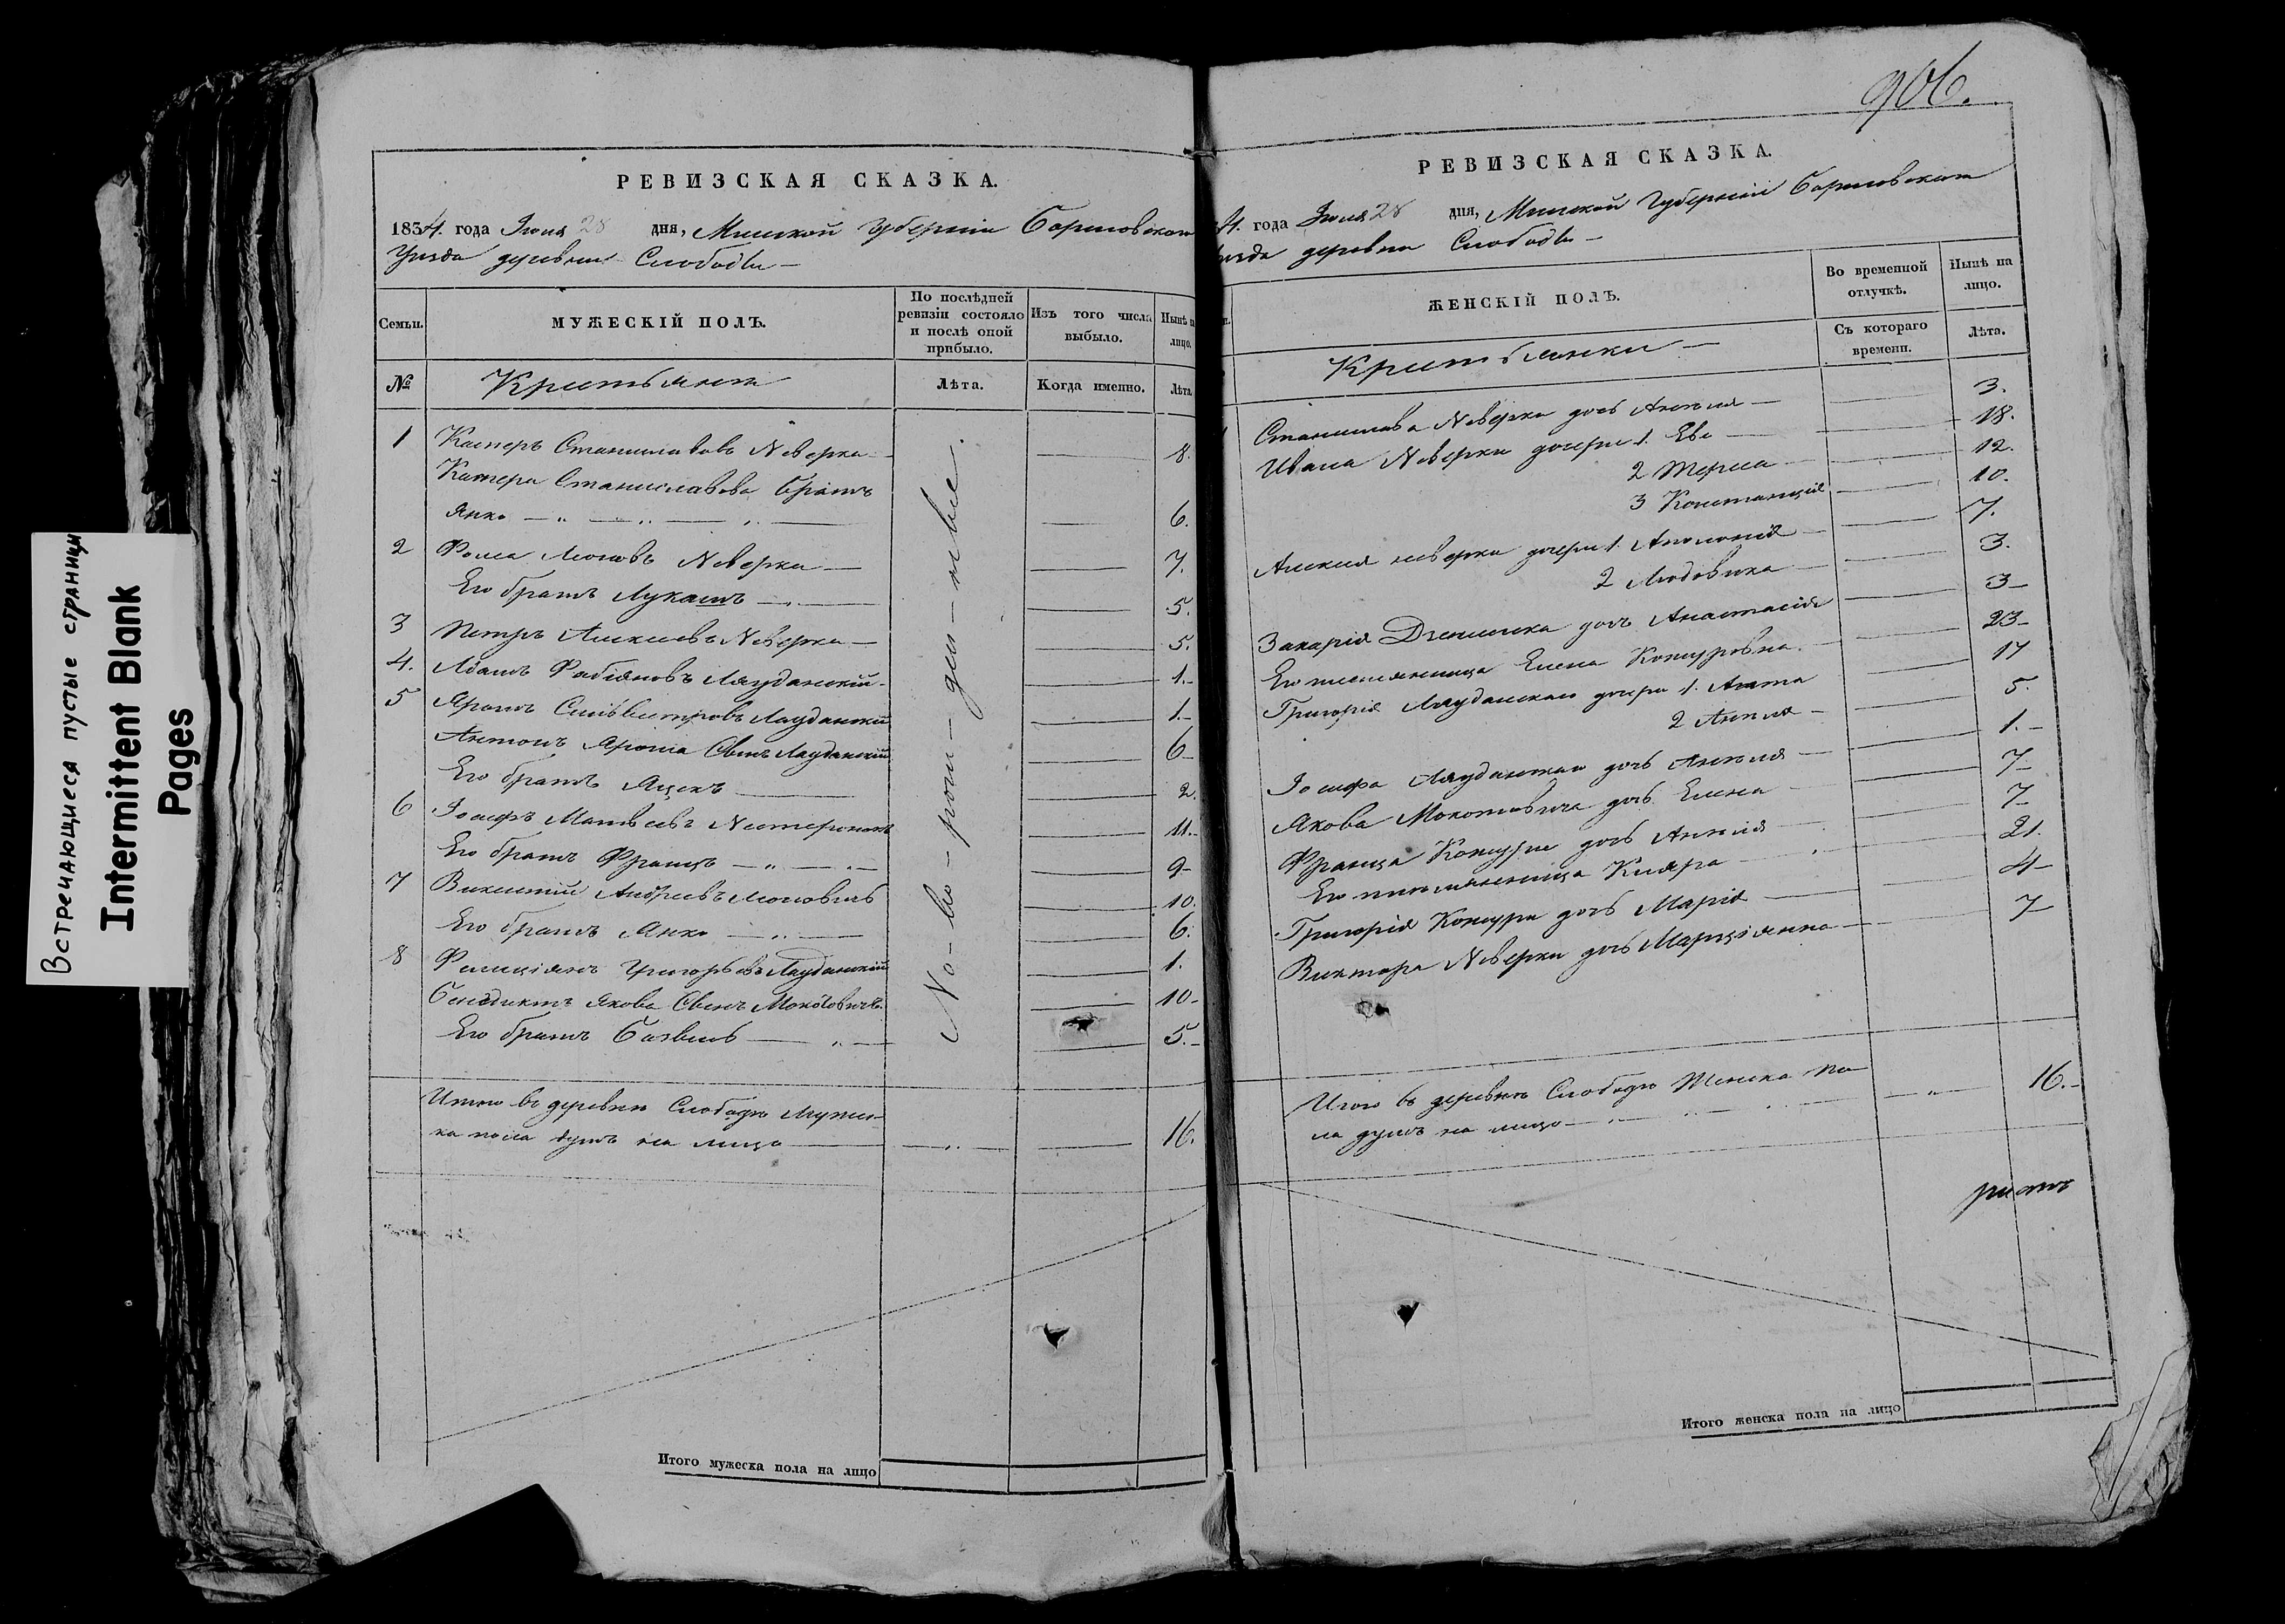 Встречающиеся пустые страницы
Intermittent Blank
Pages
РЕВИЗСКАЯ СКАЗКА.
1854. года Июля 28 дня, Минской Губерніи Борисовскаго
Уезда деревни Слободы —
Семьи.
МУЖЕСКІЙ ПОЛЪ.
По послѣдней
ревизіи состояло
и послѣ оной
прибыло.
Изъ того числа
выбыло.
Нынѣ на
лицо.
№
Крестьяне
Лѣта.
Когда именно.
Лѣта
1 Касперъ Станиславовъ Неверко — 8.
Каспера Станиславова братъ
Янко — „ — „ — „ — 6.
2 Фома Леоновъ Неверко — 7.
Его братъ Лукашъ — „ — 5.
3 Петръ Алексеевъ Неверко — 5.
4. Адамъ Фабіяновъ Лауданскій — 1.
5 Ярошъ Сильвестровъ Лауданскій 1.
Антонъ Яроша Сынъ Лауданскій 6
Его братъ Яцекъ — 2.
6 Іосифъ Матвеевъ 11.
Его братъ Францъ — „ — „ — 9
7 Викентій Андреевъ 10.
Его братъ Янко — „ — 6.
8 Фелиціянъ Григорьевъ Лауданскій 1.
Бенедиктъ Якова Сынъ 10
Его братъ — „ — 5.
Но-во-рож-ден-ные.
Итого въ деревне Слободе Мужес-
ка пола душъ на лицо — „ — 16.
Итого мужеска пола на лицо
906.
РЕВИЗСКАЯ СКАЗКА.
4. года Июля 28 дня, Минской Губерніи Борисовскаго
уезда деревни Слободы —
ЖЕНСКІЙ ПОЛЪ.
Во временной
отлучкѣ.
Нынѣ на
лицо.
Съ котораго
времени.
Лѣта.
Крестьянки —
Станислава Неверки дочь Анеля — 3.
Ивана Неверки дочери 1. Ева — 18.
2 Тереса — 12.
3 Констанція — 10.
Алексея Неверки дочери 1. Аполонія — 7.
2 Людовика — 3.
Захарія дочь Анастасія — 3
Его племянница Елена 23
Григорія Лауданскаго дочери 1. Агата 17
2 Анеля — 5.
Іосифа Лауданскаго дочь Анеля — 1.
Якова дочь Елена — 7
Франца дочь Анеля — 7
Его племянница Кляра — 21.
Григорія дочь Марія — 4
Виктора Неверки дочь Марціянна — 7
Итого въ деревне Слободе Женска по-
ла душъ на лицо — „ — 16.
Итого женска пола на лицо